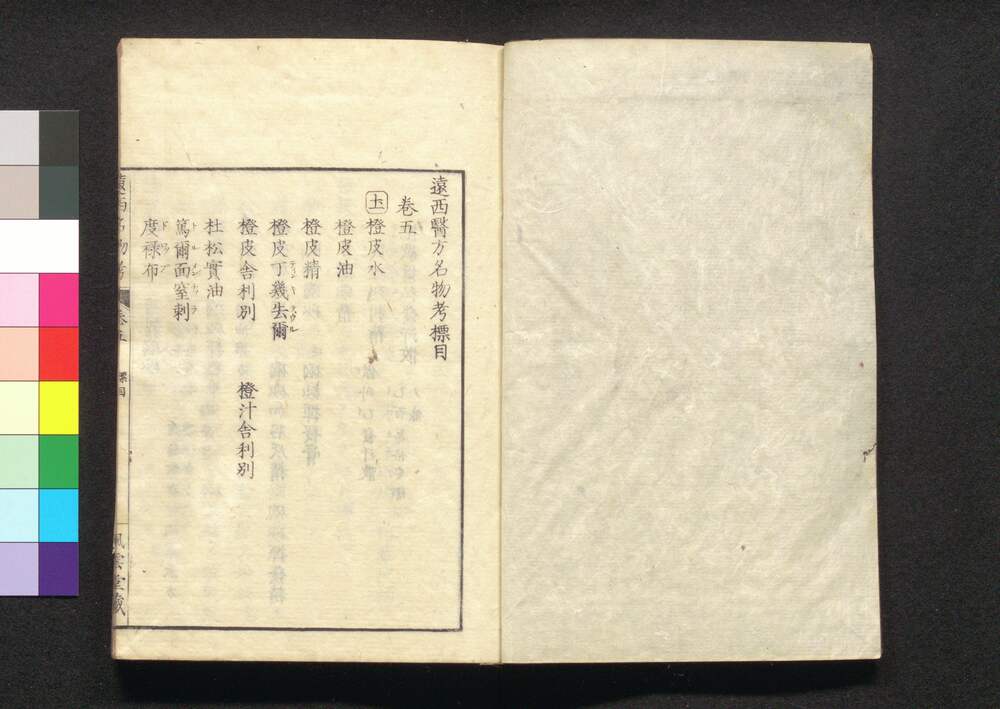 遠西醫方名物考標目
卷五
土 橙皮水
橙皮油
橙皮精
橙皮丁幾去爾
橙皮舎利別 橙汁舎利別
杜松實油
篤爾面窒剌
度祿布
遠西名物考 卷五 標目 風雲堂藏